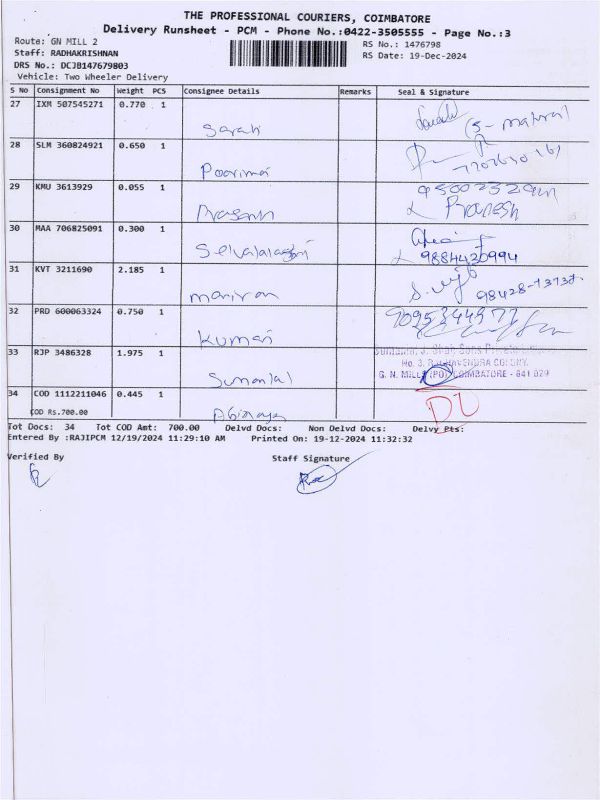 THE PROFESSIONAL COURIERS, COIMBATORE
Delivery Runsheet - PCM - Phone No.:0422-3505555 - Page No.:3
Route: GN MILL 2
RS No.: 1476798
Staff: RADHAKRISHNAN
RS Date: 19-Dec-2024
DRS No.: DCJB147679803
Vehicle: Two Wheeler Delivery
S No Consignment No Weight PCS Consignee Details Remarks Seal & Signature
27 IXM 507545271 0.770 1
Sarah
28 SLM 360824921 0.650 1
Poorima
29 KMU 3613929 0.055 1
Prasanh
Pranesh
30 MAA 706825091 0.300 1
9884420994
31 KVT 3211690 2.185 1
mariran
32 PRD 600063324 0.750 1
Kumar
33 RJP 3486328 1.975 1
Sumanlal
G. N. MILLS (PO) COIMBATORE - 641 029
34 COD 1112211046 0.445 1
COD Rs.700.00
Abinaya
DL
Tot Docs: 34 Tot COD Amt: 700.00 Delvd Docs: Non Delvd Docs: Delvy Pts:
Entered By :RAJIPCM 12/19/2024 11:29:10 AM Printed On: 19-12-2024 11:32:32
Verified By Staff Signature